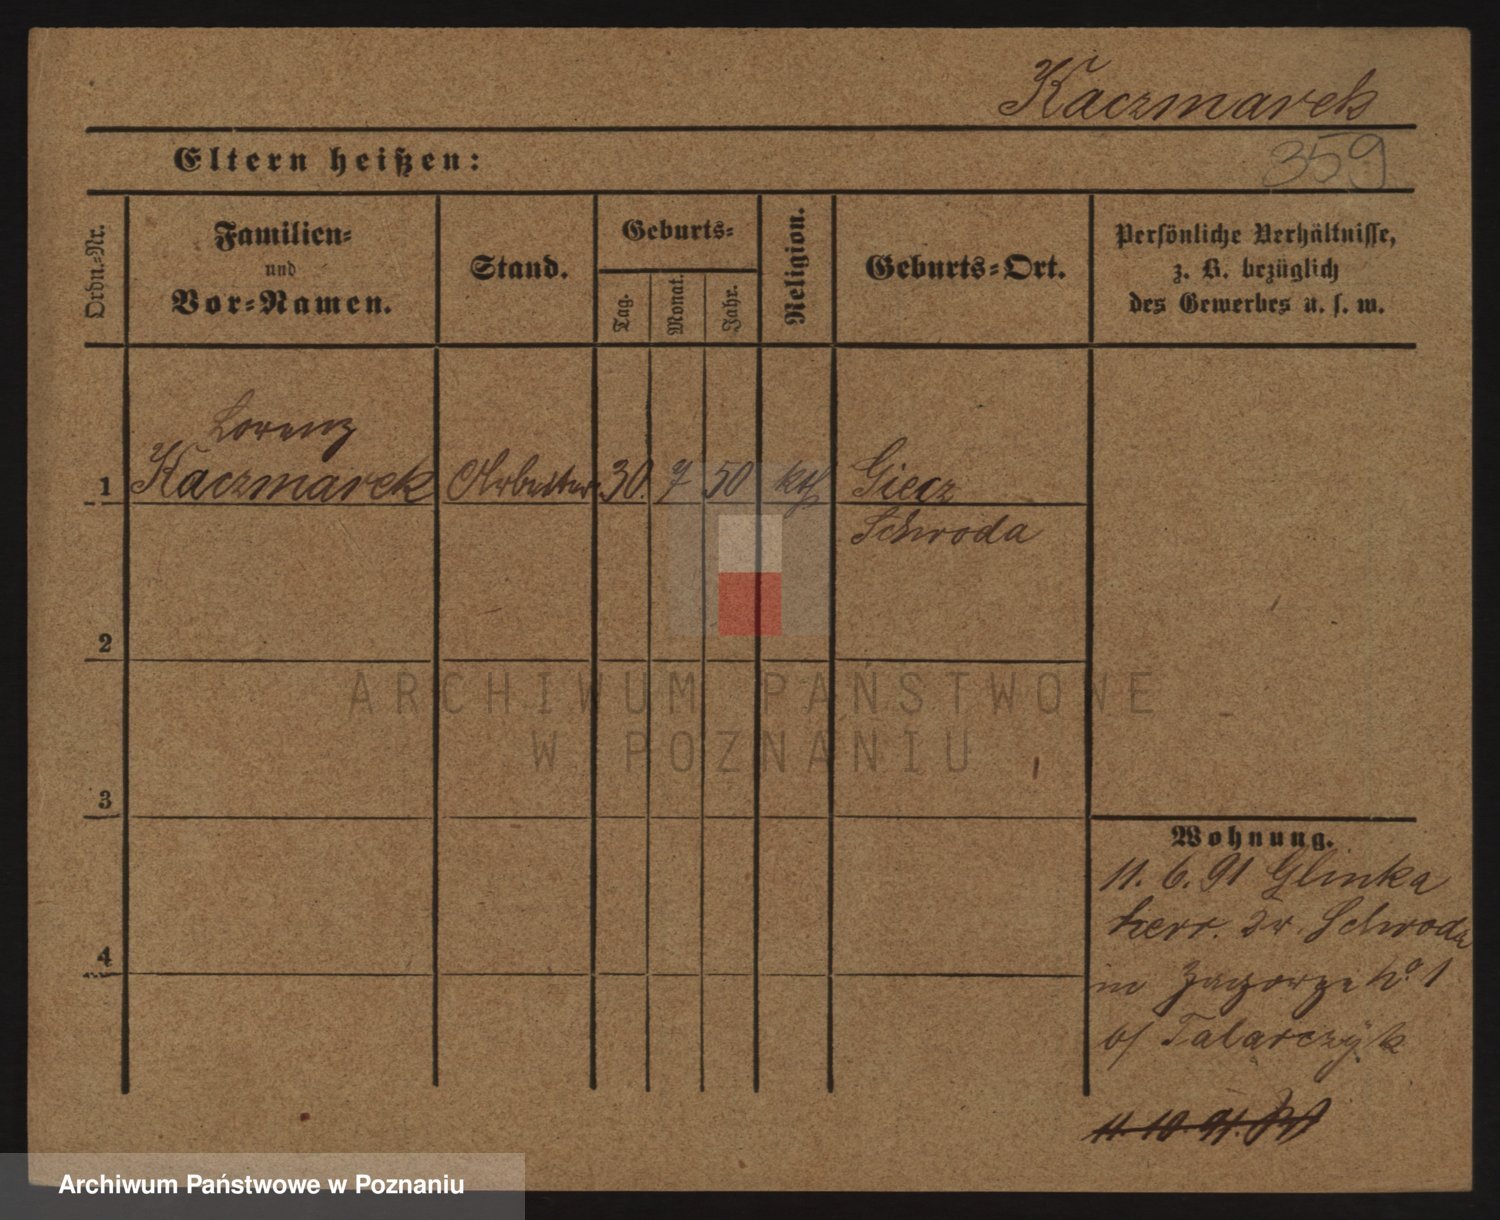 Kaczmarek
Eltern heißen:
359
Ordn.-Nr.
Familien-
und
Vor-Namen.
Stand.
Geburts-
Tag.
Monat.
Jahr.
Religion.
Geburts-Ort.
Persönliche Verhältnisse,
z. B. bezüglich
des Gewerbes u. s. w.
Lorenz
1 Kaczmarek Arbeiter 30. 7 50 kth Giecz
Schroda
2
3
4
Wohnung.
11. 6. 91 Glinka
herr. Kr. Schroda
in Zagorze No 1
b/ Talarczyk
11. 10. 91.
ARCHIWUM PAŃSTWOWE
W POZNANIU
Archiwum Państwowe w Poznaniu